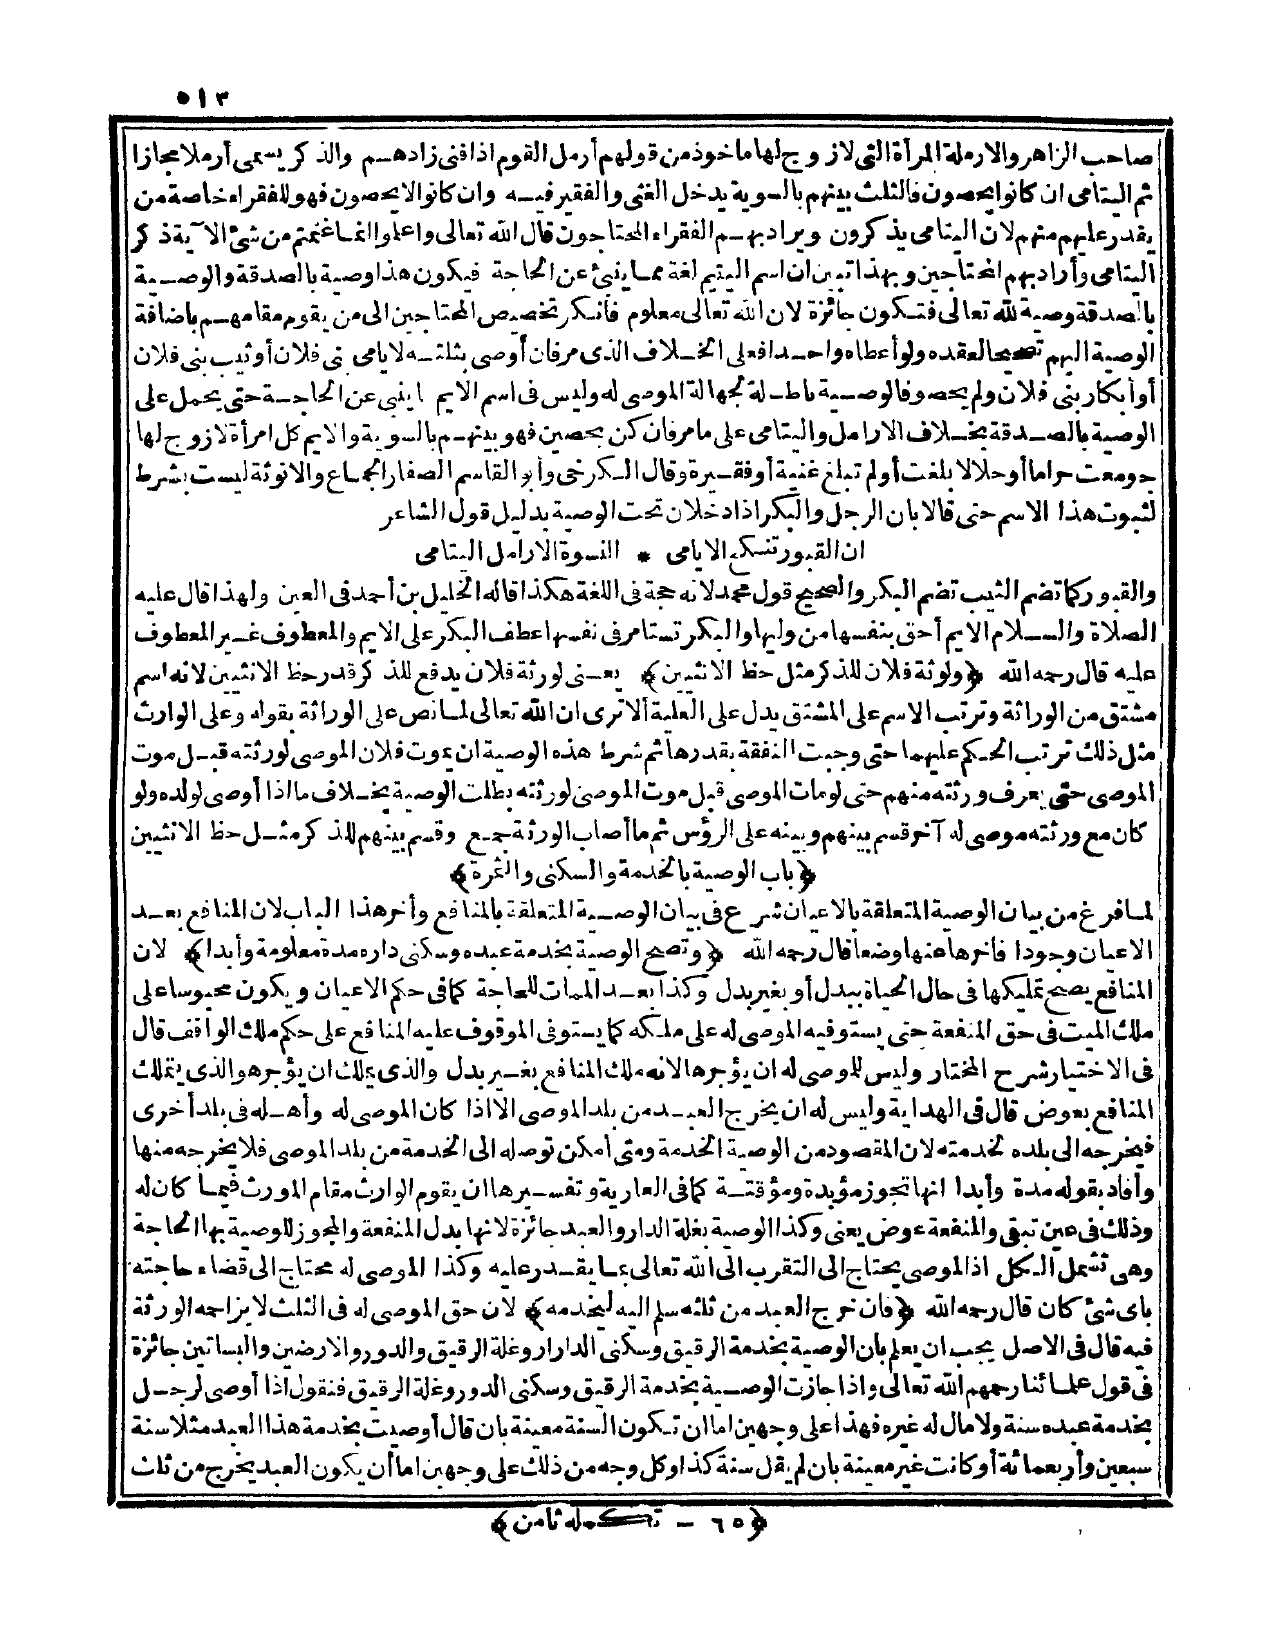 ٥١٣
صاحب الزاهر والارملة المرأة التى لا زوج لها ماخوذ من قولهم أرمل القوم اذا فنى زادهم والذكر يسمى أرملا مجازا
ثم اليتامى ان كانوا يحصون فالثلث بينهم بالسوية يدخل الغنى والفقير فيه وان كانوا لا يحصون فهو للفقراء خاصة من
يقدر عليهم منهم لان اليتامى يذكرون ويراد بهم الفقراء المحتاجون قال الله تعالى واعلموا انما غنمتم من شئ الآية ذكر
اليتامى وأراد بهم المحتاجين وبهذا تبين ان اسم اليتيم لغة مما ينبئ عن الحاجة فيكون هذا وصية بالصدقة والوصية
بالصدقة وصية لله تعالى فتكون جائزة لان الله تعالى معلوم فأنكر تخصيص المحتاجين الى من يقوم مقامهم باضافة
الوصية اليهم تصحيحا لعقده ولو أعطاه واحدا فعلى الخلاف الذى مر فان أوصى بثلثه لايامى بنى فلان أو ثيب بنى فلان
أو أبكار بنى فلان ولم يحصو فالوصية باطلة لجهالة الموصى له وليس فى اسم الايم ما ينبى عن الحاجة حتى يحمل على
الوصية بالصدقة بخلاف الارامل واليتامى على ما مر فان كن يحصين فهو بينهم بالسوية والايم كل امرأة لا زوج لها
جومعت حراما أو حلالا بلغت أو لم تبلغ غنية أو فقيرة وقال الكرخى وأبو القاسم الصفار الجماع والانوثة ليست بشرط
لثبوت هذا الاسم حتى قالا بان الرجل والبكر اذا دخلان تحت الوصية بدليل قول الشاعر
ان القبور تنكح الايامى * النسوة الارامل اليتامى
والقبور كما تضم الثيب تضم البكر والصحيح قول محمد لانه حجة فى اللغة هكذا قاله الخليل بن أحمد فى العين ولهذا قال عليه
الصلاة والسلام الايم أحق بنفسها من وليها والبكر تستامر فى نفسها عطف البكر على الايم والمعطوف غير المعطوف
عليه قال رحمه الله ﴿ولورثة فلان للذكر مثل حظ الانثيين﴾ يعنى لورثة فلان يدفع للذكر قدر حظ الانثيين لانه اسم
مشتق من الوراثة وترتب الاسم على المشتق يدل على العلية ألا ترى ان الله تعالى لما نص على الوراثة بقوله وعلى الوارث
مثل ذلك ترتب الحكم عليهما حتى وجبت النفقة بقدرها ثم شرط هذه الوصية ان يموت فلان الموصى لورثته قبل موت
الموصى حتى يعرف ورثته منهم حتى لو مات الموصى قبل موت الموصى لورثته بطلت الوصية بخلاف ما اذا أوصى لولده ولو
كان مع ورثته موصى له آخر قسم بينهم وبينه على الرؤس ثم ما أصاب الورثة جمع وقسم بينهم للذكر مثل حظ الانثيين
﴿باب الوصية بالخدمة والسكنى والثمرة﴾
لما فرغ من بيان الوصية المتعلقة بالاعيان شرع فى بيان الوصية المتعلقة بالمنافع وأخر هذا الباب لان المنافع بعد
الاعيان وجودا فاخرها عنها وضعا قال رحمه الله ﴿وتصح الوصية بخدمة عبده وسكنى داره مدة معلومة وأبدا﴾ لان
المنافع يصح تمليكها فى حال الحياة ببدل أو بغير بدل وكذا بعد الممات للحاجة كما فى حكم الاعيان ويكون محبوسا على
ملك الميت فى حق المنفعة حتى يستوفيه الموصى له على ملكه كما يستوفى الموقوف عليه المنافع على حكم ملك الواقف قال
فى الاختيار شرح المختار وليس للموصى له ان يؤجرها لانه ملك المنافع بغير بدل والذى يملك ان يؤجر هو الذى يتملك
المنافع بعوض قال فى الهداية وليس له ان يخرج العبد من بلد الموصى الا اذا كان الموصى له وأهله فى بلد أخرى
فيخرجه الى بلده لخدمته لان المقصود من الوصية الخدمة ومتى أمكن توصله الى الخدمة من بلد الموصى فلا يخرجه منها
وأفاد بقوله مدة وأبدا انها تجوز مؤبدة ومؤقتة كما فى العارية وتفسيرها ان يقوم الوارث مقام المورث فيما كان له
وذلك فى عين تبقى والمنفعة عوض يعنى وكذا الوصية بغلة الدار والعبد جائزة لانها بدل المنفعة والمجوز للوصية بها الحاجة
وهى تشمل الكل اذ الموصى يحتاج الى التقرب الى الله تعالى بما يقدر عليه وكذا الموصى له محتاج الى قضاء حاجته
باى شئ كان قال رحمه الله ﴿فان خرج العبد من ثلثه سلم اليه ليخدمه﴾ لان حق الموصى له فى الثلث لا يزاحمه الورثة
فيه قال فى الاصل يجب ان يعلم بان الوصية بخدمة الرقيق وسكنى الدار وغلة الرقيق والدور والارضين والبساتين جائزة
فى قول علمائنا رحمهم الله تعالى واذا جازت الوصية بخدمة الرقيق وسكنى الدور وغلة الرقيق فنقول اذا أوصى لرجل
بخدمة عبده سنة ولا مال له غيره فهذا على وجهين اما ان تكون السنة معينة بان قال أوصيت بخدمة هذا العبد مثلا سنة
سبعين وأربعمائة أو كانت غير معينة بان لم يقل سنة كذا وكل وجه من ذلك على وجهين اما أن يكون العبد يخرج من ثلث
﴿٦٥ - تكمله ثامن﴾